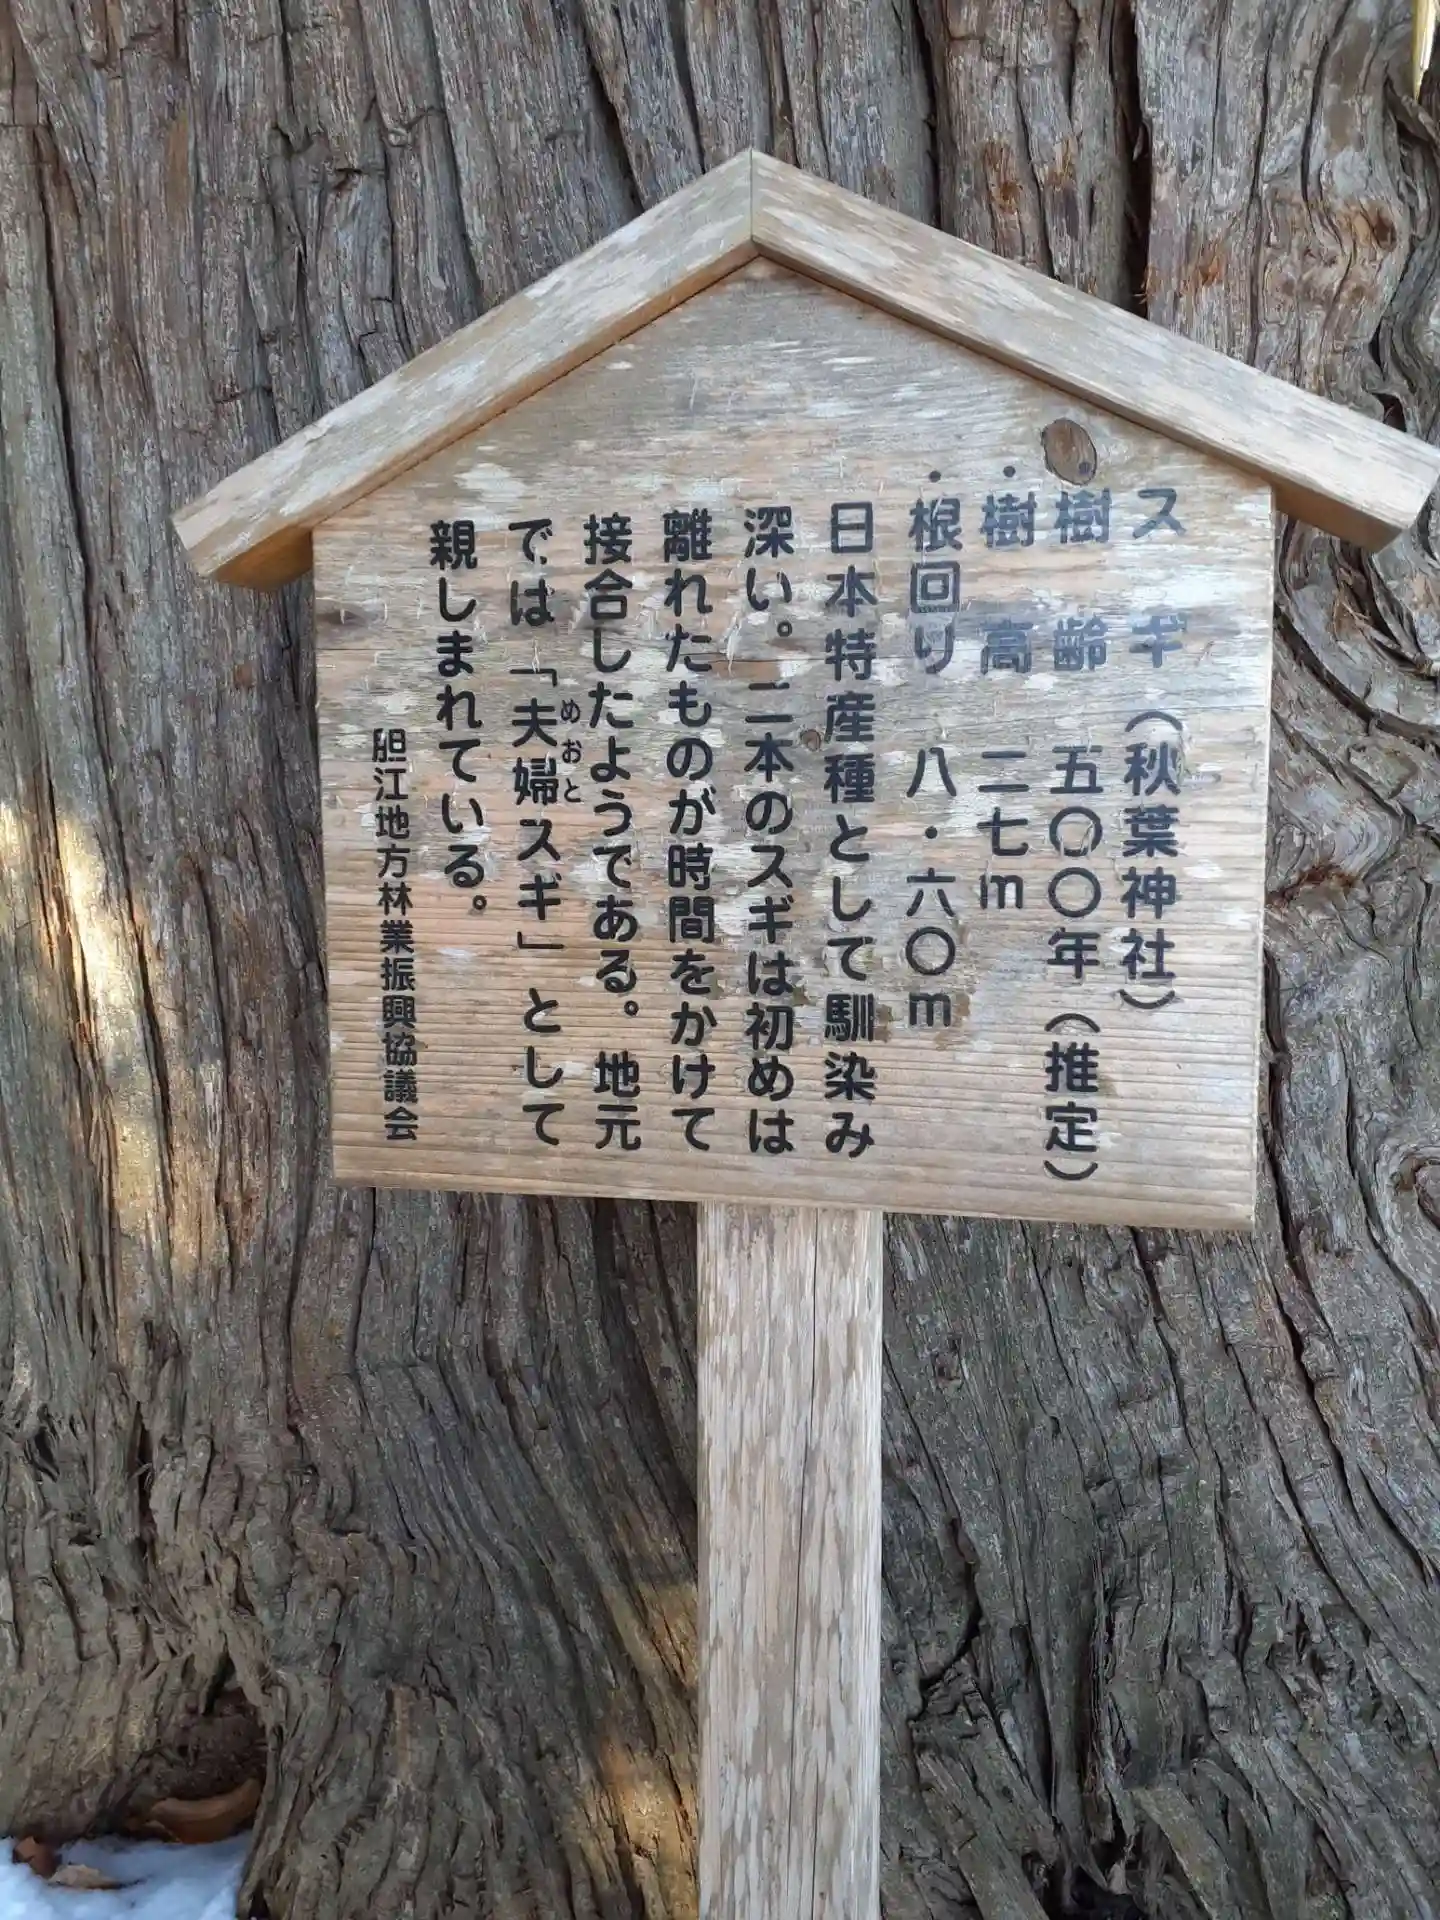 スギ（秋葉神社）
・樹齢 五〇〇年（推定）
・樹高 二七m
・根回り 八・六〇m
日本特産種として馴染み
深い。二本のスギは初めは
離れたものが時間をかけて
接合したようである。地元
では「夫婦スギ」として
めおと
親しまれている。
胆江地方林業振興協議会